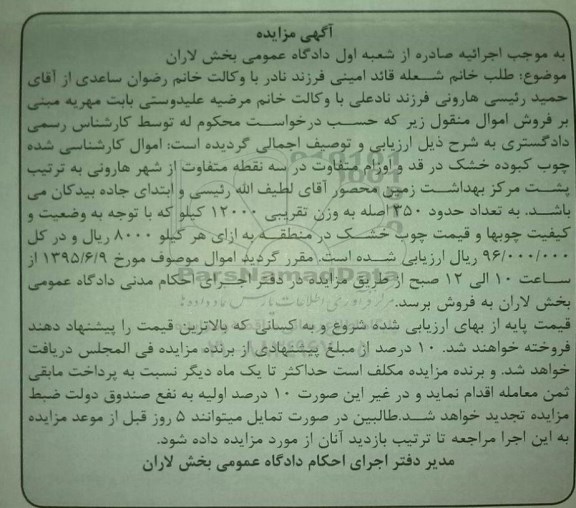 آگهی مزایده
به موجب اجرائیه صادره از شعبه اول دادگاه عمومی بخش لاران
موضوع: طلب خانم شعله قائد امینی فرزند نادر با وکالت خانم رضوان ساعدی از آقای
حمید رئیسی هارونی فرزند نادعلی با وکالت خانم مرضیه علیدوستی بابت مهریه مبنی
بر فروش اموال منقول زیر که حسب درخواست محکوم له توسط کارشناس رسمی
دادگستری به شرح ذیل ارزیابی و توصیف اجمالی گردیده است: اموال کارشناسی شده
چوب کبوده خشک در قد و اوزان متفاوت در سه نقطه متفاوت از شهر هارونی به ترتیب
پشت مرکز بهداشت زمین محصور آقای لطیف الله رئیسی و ابتدای جاده بیدکان می
باشد. به تعداد حدود ۳۵۰ اصله به وزن تقریبی ۱۲۰۰۰ کیلو که با توجه به وضعیت و
کیفیت چوبها و قیمت چوب خشک در منطقه به ازای هر کیلو ۸۰۰۰ ریال و در کل
۹۶/۰۰۰/۰۰۰ ریال ارزیابی شده است. مقرر گردید اموال موصوف مورخ ۱۳۹۵/۶/۹ از
ساعت ۱۰ الی ۱۲ صبح از طریق مزایده در دفتر اجرای احکام مدنی دادگاه عمومی
بخش لاران به فروش برسد.
قیمت پایه از بهای ارزیابی شده شروع و به کسانی که بالاترین قیمت را پیشنهاد دهند
فروخته خواهند شد. ۱۰ درصد از مبلغ پیشنهادی از برنده مزایده فی المجلس دریافت
خواهد شد. و برنده مزایده مکلف است حداکثر تا یک ماه دیگر نسبت به پرداخت مابقی
ثمن معامله اقدام نماید و در غیر این صورت ۱۰ درصد اولیه به نفع صندوق دولت ضبط
مزایده تجدید خواهد شد.طالبین در صورت تمایل میتوانند ۵ روز قبل از موعد مزایده
به این اجرا مراجعه تا ترتیب بازدید آنان از مورد مزایده داده شود.
مدیر دفتر اجرای احکام دادگاه عمومی بخش لاران
ParsNamadData